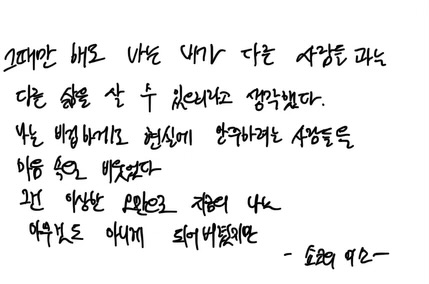 그때만 해도 나는 내가 다른 사람들과는
다른 삶을 살 수 있으리라고 생각했다.
나는 비겁하게도 현실에 안주하려는 사람들을
마음 속으로 비웃었다
그런 이상한 오만으로 지금의 나는
아무것도 아니게 되어버렸지만
- 쇼코의 미소 -